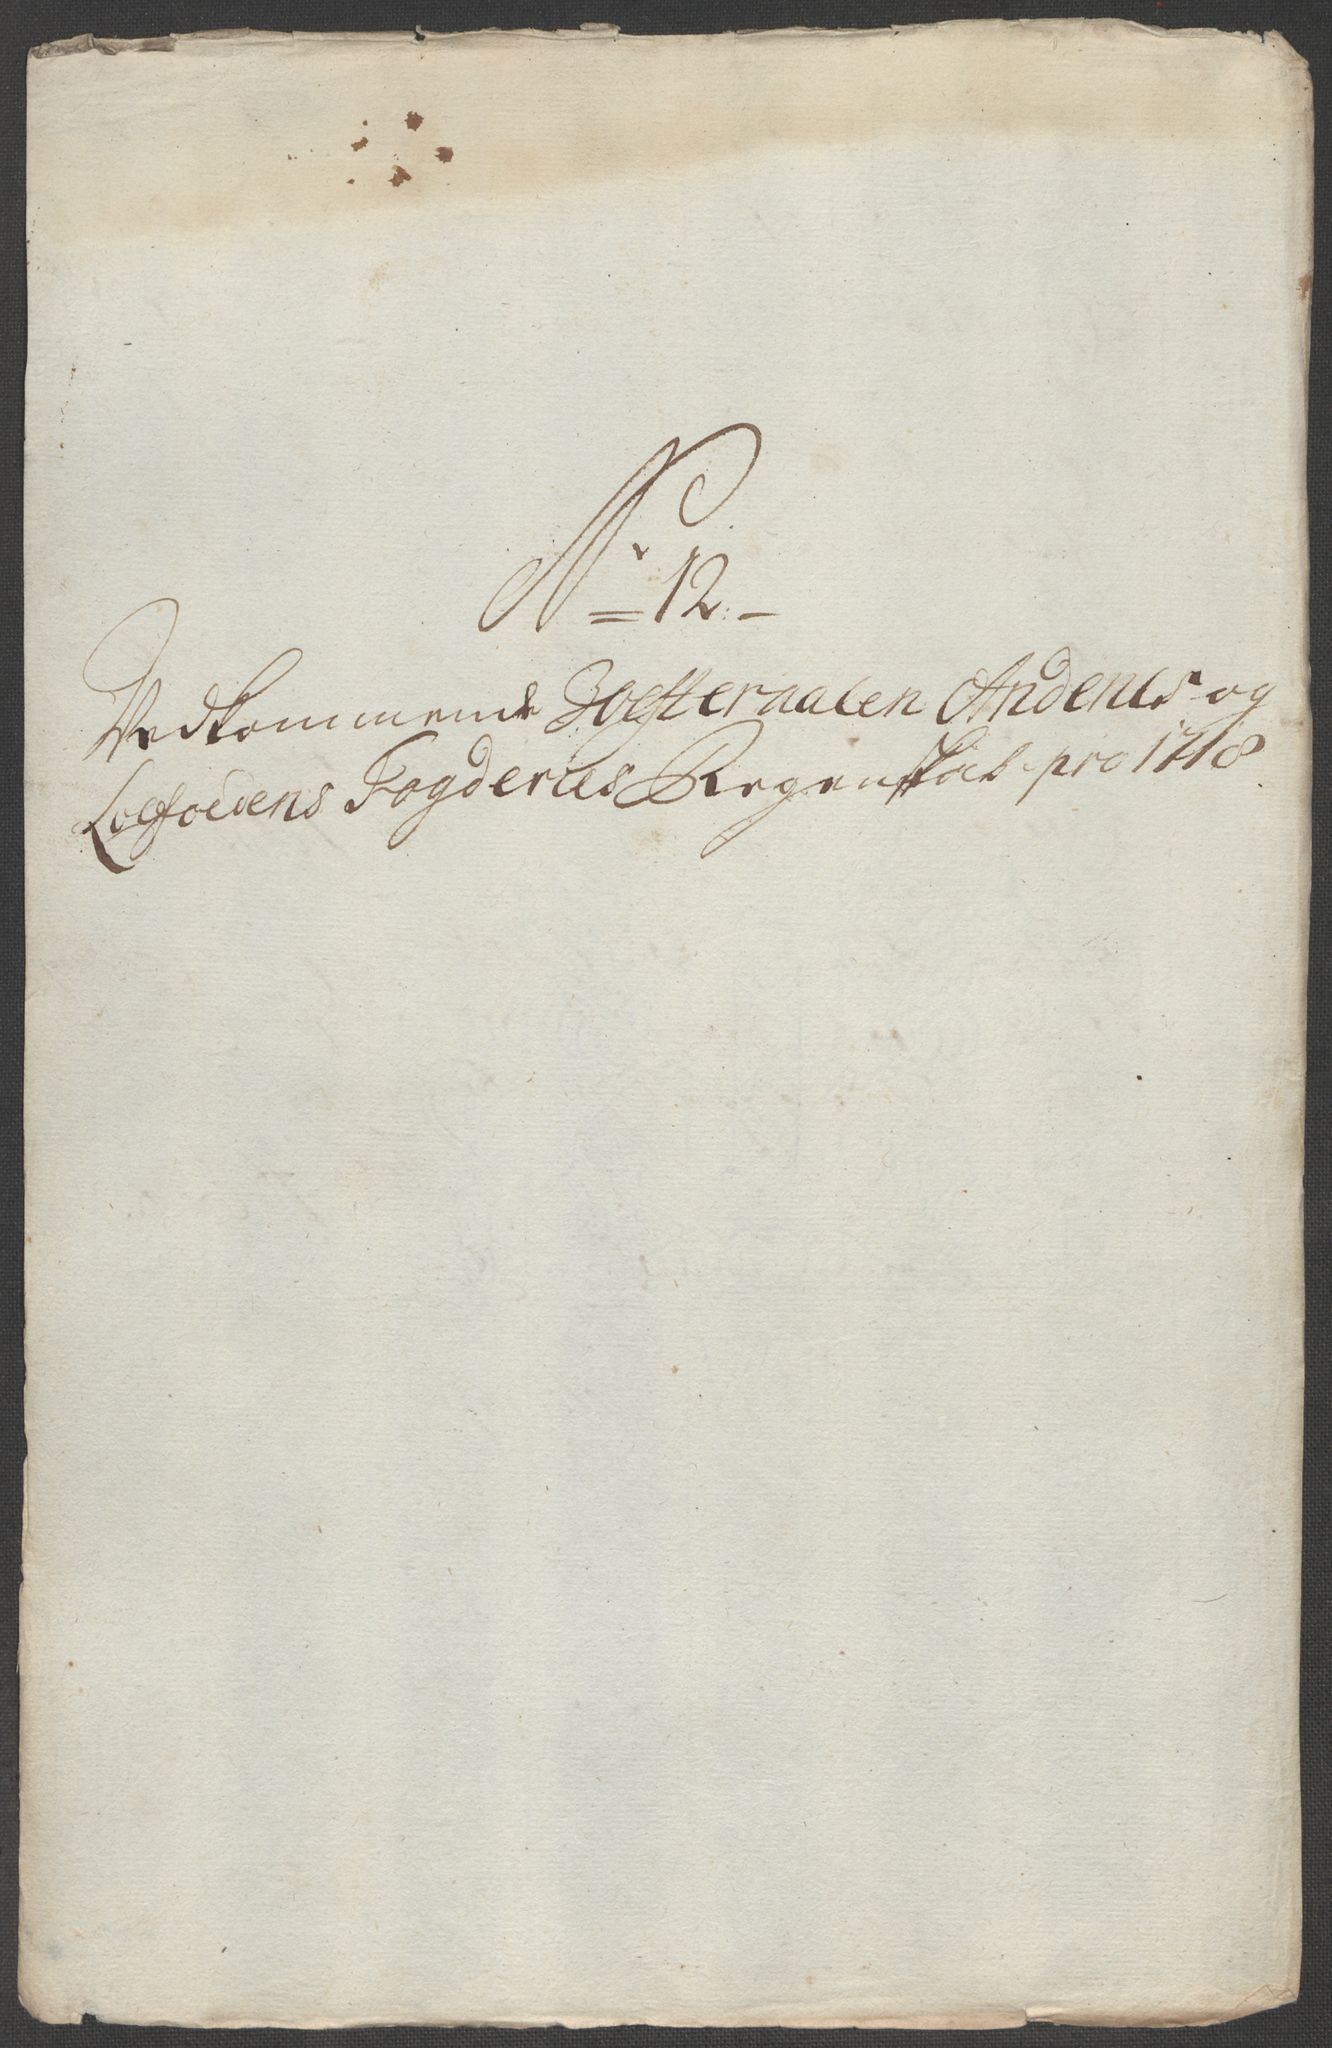 No
12
Vedkommende Woesteraalen Andenes og
Loefoedens Fogderies Regenskab pro 1718